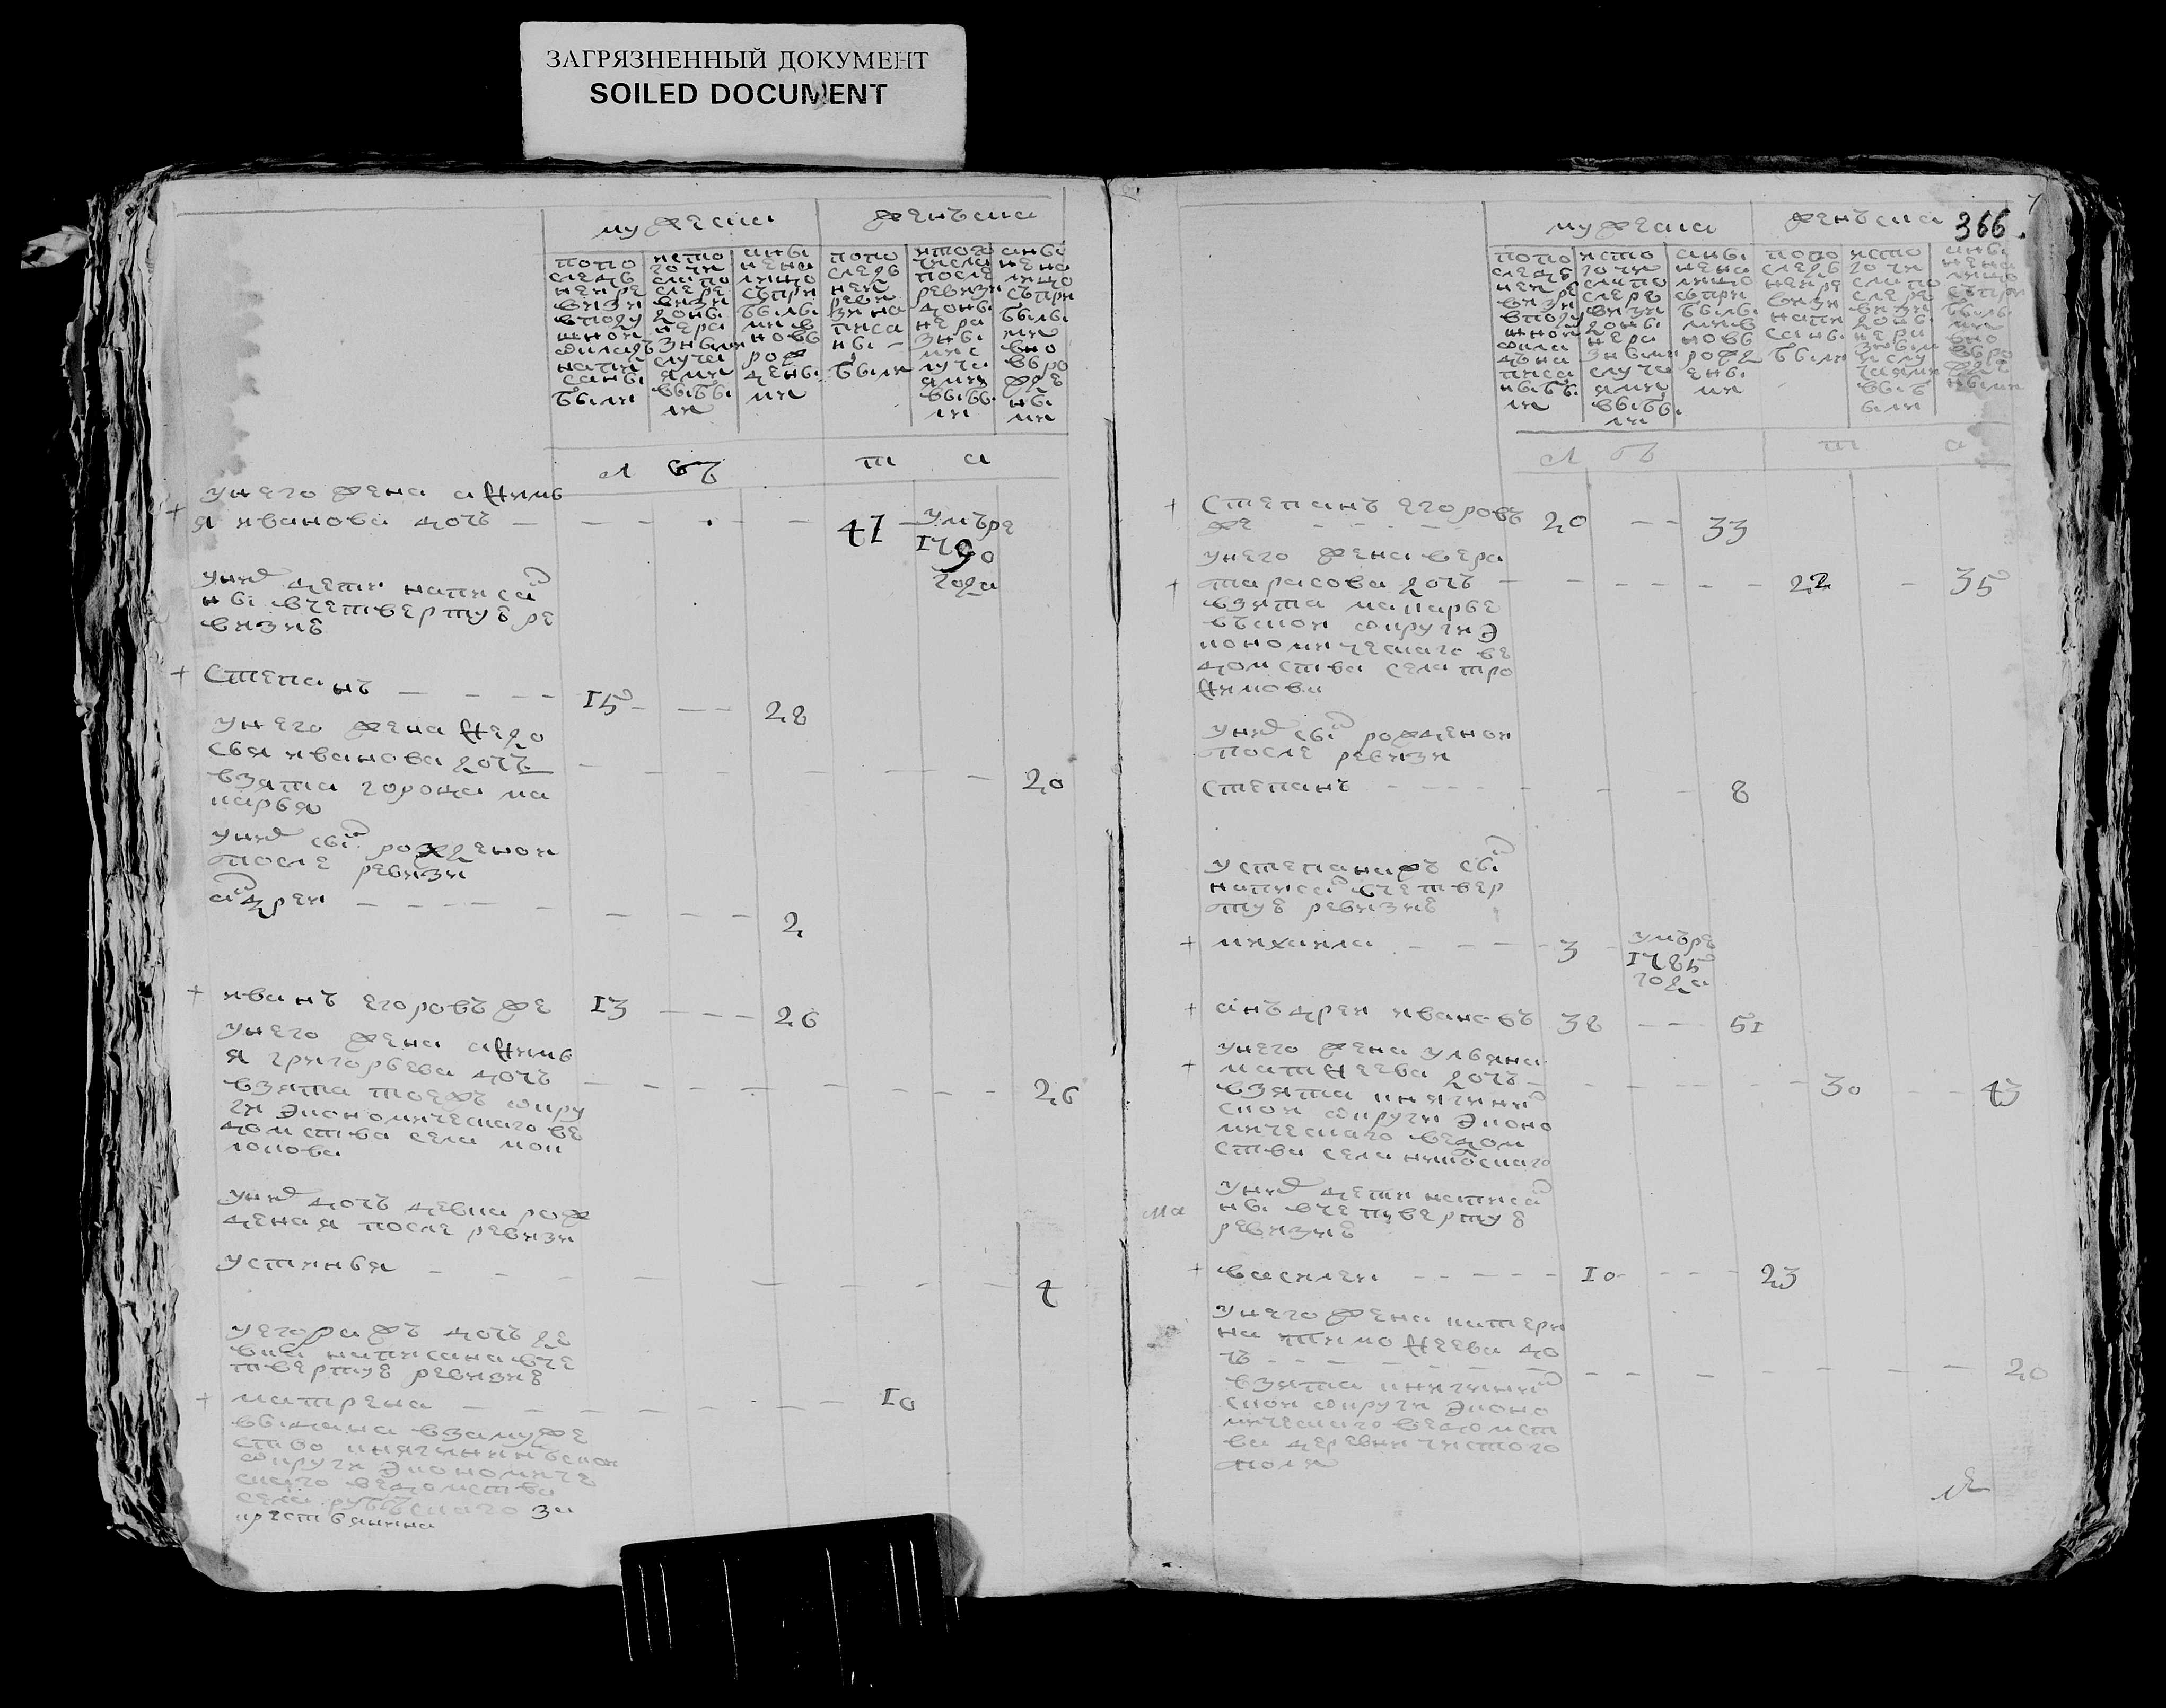 ЗАГРЯЗНЕННЫЙ ДОКУМЕНТ
SOILED DOCUMENT
мужеска
женъска
попо
следъ
неи ре
визи
въподу
шнои
напи
саны
были
исто
го чи
сла по
сле ре
визи
доны
нера
зными
случа
ями
выбы
ли
аны
нена
лицо
съпри
былы
ми в
новь
рож
дены
ми
попо
следь
неи
реви
зи на
писа
ны
были
истого
числа
после
ревизи
доны
нера
зны
ми с
луча
ями
выбы
ли
аны
нена
лицо
съпри
былы
ми
вно
въро
жде
ны
ми
л ѣтъ
т а
унего жена афимь
я иванова дочь
41
умъре
1790
года
унихъ дети написа
ны вчетвертуе ре
визие
степанъ
15
28
унего жена федо
сья иванова дочь
взята города ма
карья
20
унихъ сынъ рожденои
после ревизи
андреи
2
иванъ егоровъ же
13
26
унего жена афимь
я григорьева дочь
взята тоежъ окру
ги экономическаго ве
домства села мок
локова
26
унихъ дочь девка рож
деная после ревизи
устинья
4
уегора жъ дочь де
вка написана вче
твертуе ревизие
матрена
10
выдана взамуже
ство княгининъскои
округи экономиче
скаго ведомства
села рубъскаго за
крестьянина
366.
мужеска
женъска
попо
следъ
неи ре
визи
въподу
шнои
сказ
напи
саны
были
исто
го чи
сла по
сле ре
визи
доны
нера
зными
случа
ями
выбы
ли
аны
нена
лицо
съпри
былы
ми в
новь
рожд
ены
ми
попо
следь
неи ре
визи
напи
саны
были
исто
го чи
сла по
сле ре
визи
доны
нера
зным
и слу
чаями
выб
ыли
аны
нена
лицо
съпри
былы
ми
вно
въро
жде
ными
л ѣтъ
т а
степанъ егоровъ
же
20
33
унего жена вера
тарасова дочь
22
35
взята макарье
въскои округи э
кономическаго ве
домства села тро
фимова
унихъ сынъ рожденои
после ревизи
степанъ
8
устепана жъ сынъ
написанъ вчетвер
туе ревизие
михаила
3
умъре
1785
года
анъдреи ивановъ
38
51
унего жена ульяна
матфеева дочь
30
43
взята княгинин
скои округи эконо
мическаго ведом
ства села
унихъ дети написа
ны вчетвертуе
ревизие
василеи
10
23
унего жена катери
на тимофеева до
чь
20
взята княгинин
скои округи эконо
мическаго ведомст
ва деревни чистого
поля